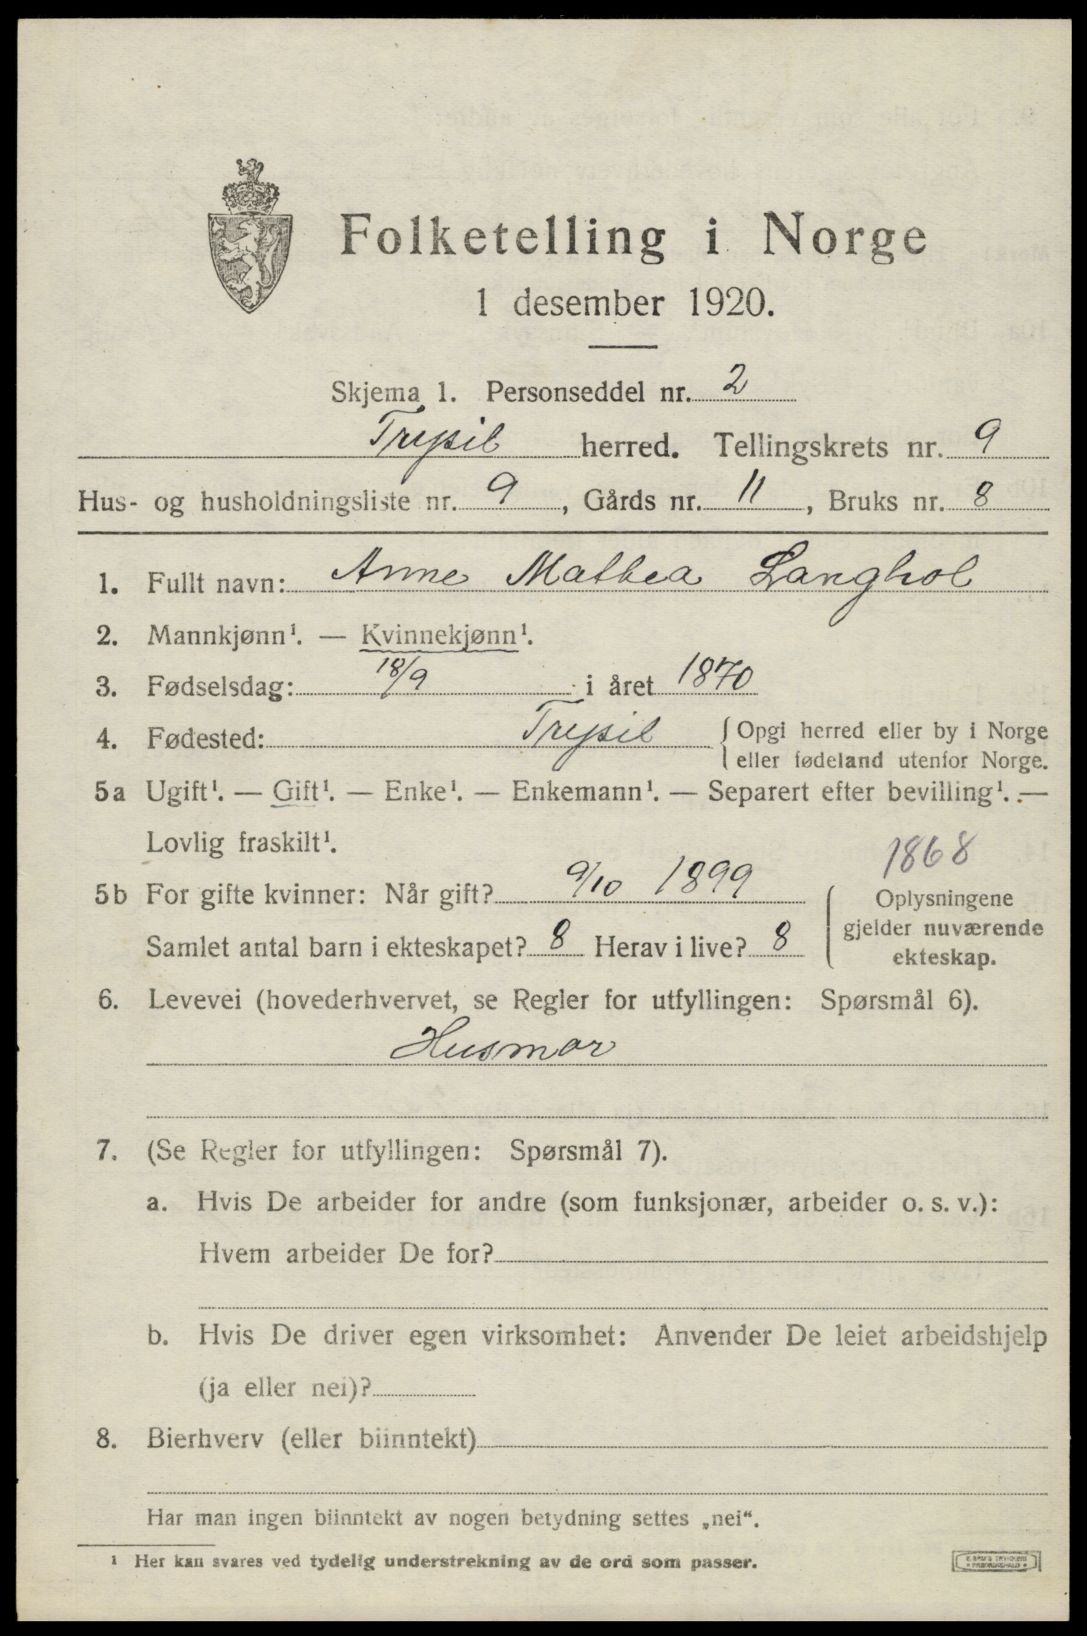 Folketelling i Norge
1 desember 1920.
Skjema 1. Personseddel nr. 2
Trysil herred. Tellingskrets nr. 9
Hus- og husholdningsliste nr. 9, Gårds nr. 11, Bruks nr. 8
1. Fullt navn: Anne Mathea Langhol
2. Mannkjønn¹. — Kvinnekjønn¹.
3. Fødselsdag: 18/9 i året 1870
4. Fødested: Trysil { Opgi herred eller by i Norge
eller fødeland utenfor Norge.
5a Ugift¹. — Gift¹. — Enke¹. — Enkemann¹. — Separert efter bevilling¹. —
Lovlig fraskilt¹.
1868
5b For gifte kvinner: Når gift? 9/10 1899
Samlet antal barn i ekteskapet? 8 Herav i live? 8
Oplysningene
gjelder nuværende
ekteskap.
6. Levevei (hovederhvervet, se Regler for utfyllingen: Spørsmål 6).
Husmor
7. (Se Regler for utfyllingen: Spørsmål 7).
a. Hvis De arbeider for andre (som funksjonær, arbeider o. s. v.):
Hvem arbeider De for?
b. Hvis De driver egen virksomhet: Anvender De leiet arbeidshjelp
(ja eller nei)?
8. Bierhverv (eller biinntekt)
Har man ingen biinntekt av nogen betydning settes „nei“.
¹ Her kan svares ved tydelig understrekning av de ord som passer.